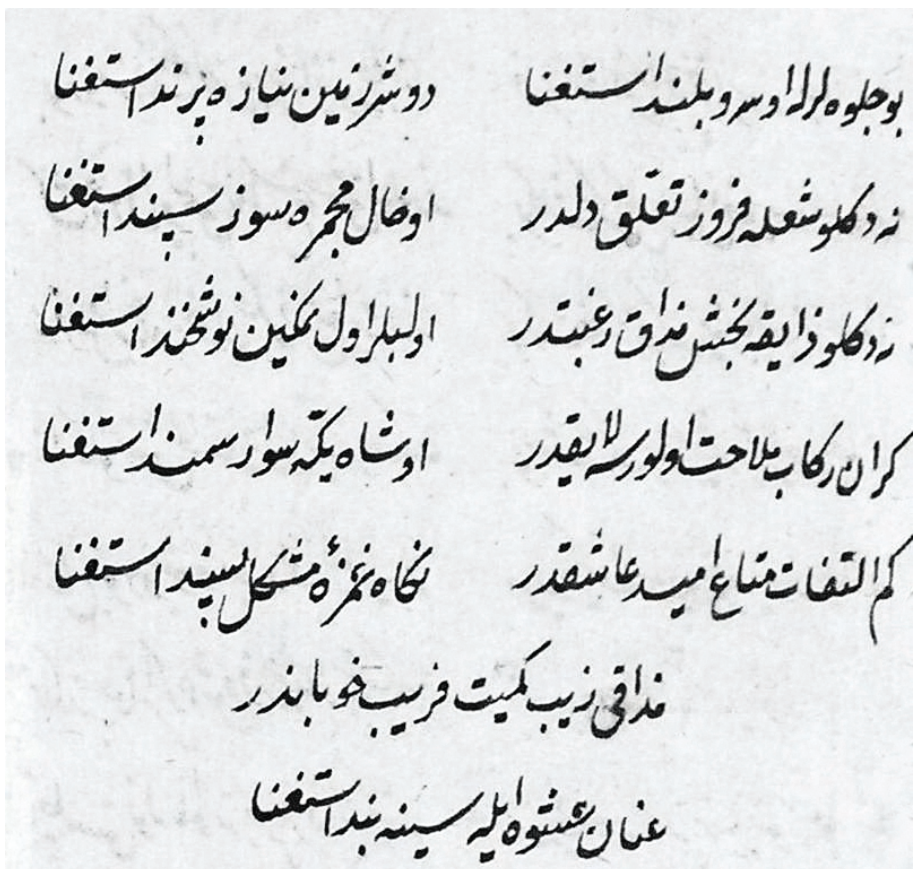 بو جلوه‌لرله او سرو بلند استغنا دوشر زمین نیازه پرند استغنا
نه دکلو شعله فروز تعلّق دلدر او خال مجمره سوز سپند استغنا
نه دکلو ذایقه بخش مذاق رغبتدر او لبلر اول نمکین نوشخند استغنا
کران رکاب ملاحت اولورسه لایقدر او شاه یکّه سوار سمند استغنا
کم التفات متاع امید عاشقدر نکاه غمزهٔ مشکل پسند استغنا
مذاقی زیب کمیت فریب خوباندر
عنان عشوه ایله سینه بند استغنا